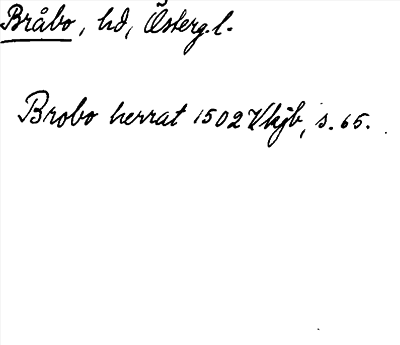 Bråbo, hd, Österg.l.
Brobo herrat 1502 Vkjb, s. 65.